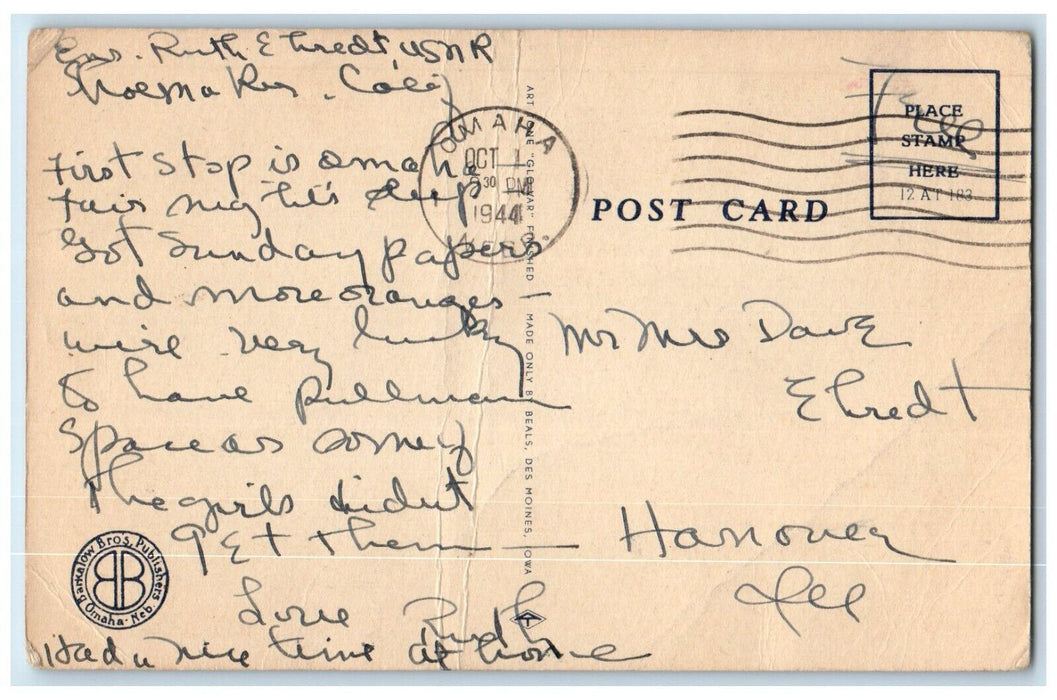 Ens. Ruth Ehredt USNR
Shoemaker, Calif
First stop is Omaha
Fair night's sleep
Got Sunday papers
and more oranges —
we're very lucky
to have pullman
space as some of
the girls didn't
get them —
Love Ruth
Had a nice time at home
OMAHA
OCT 1
30 PM
1944
ART TONE "GLO-VAR" FINISHED — MADE ONLY BY BEALS, DES MOINES, IOWA
POST CARD
Free
PLACE
STAMP
HERE
12 AT 183
Mr Mrs Dave
Ehredt
Hanover
Ill
Barkalow Bros. Publishers
BB
Omaha - Neb.